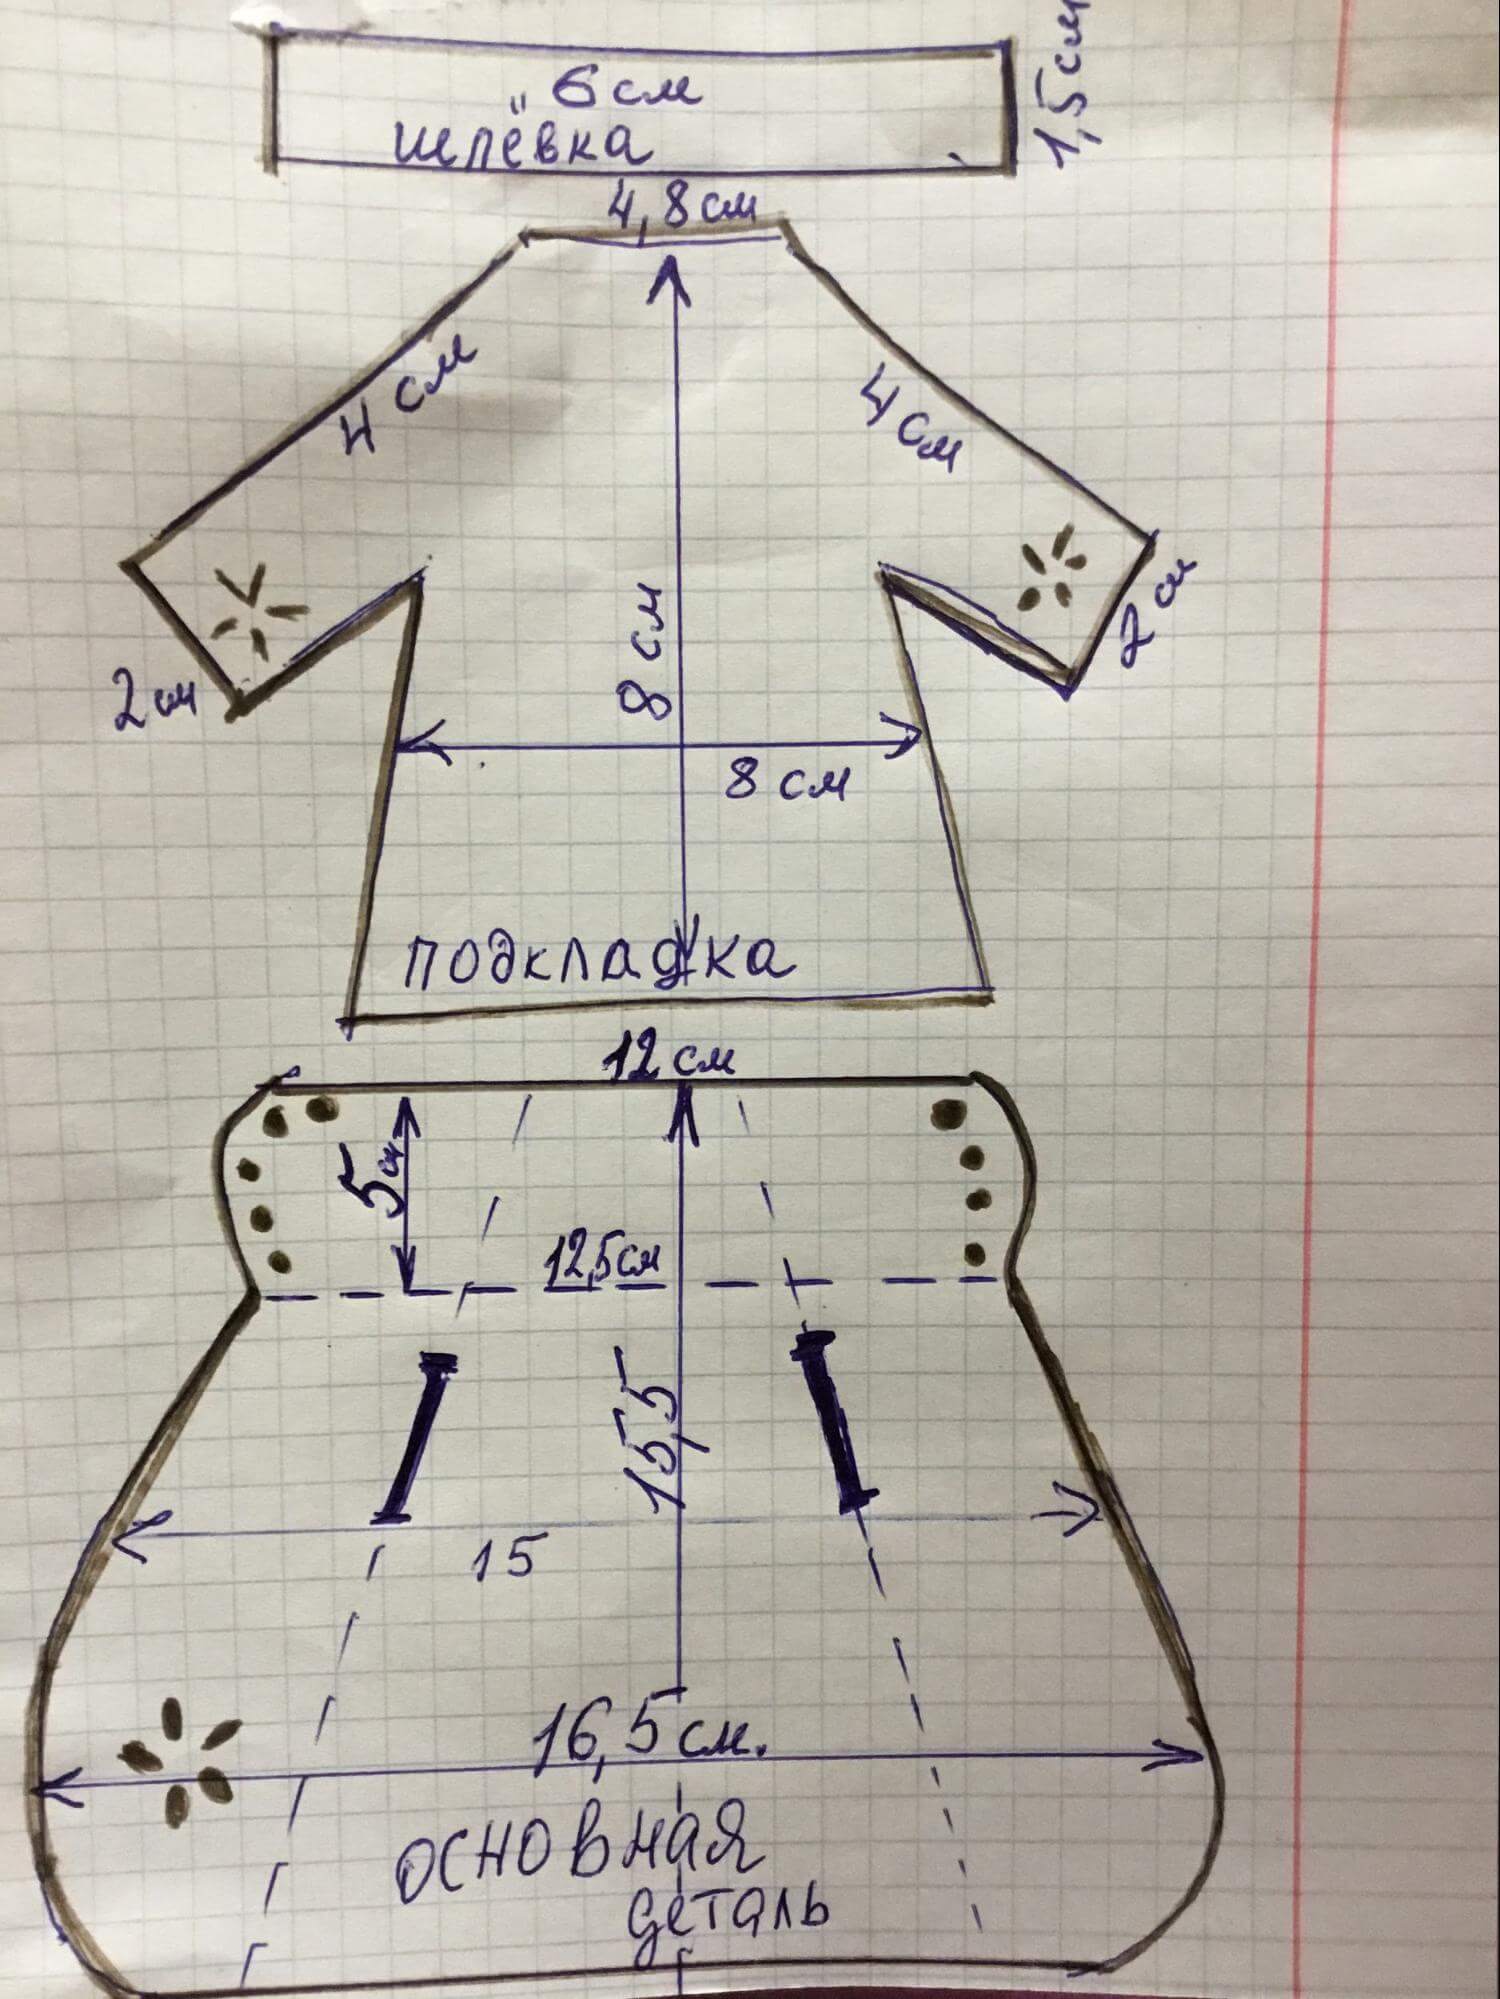 „ 6 см
шлёвка
1,5 см
4,8 см
4 см
4 см
2 см
2 см
8 см
8 см
подкладка
12 см
5 см
12,5 см
15,5
15
16,5 см.
основная
деталь